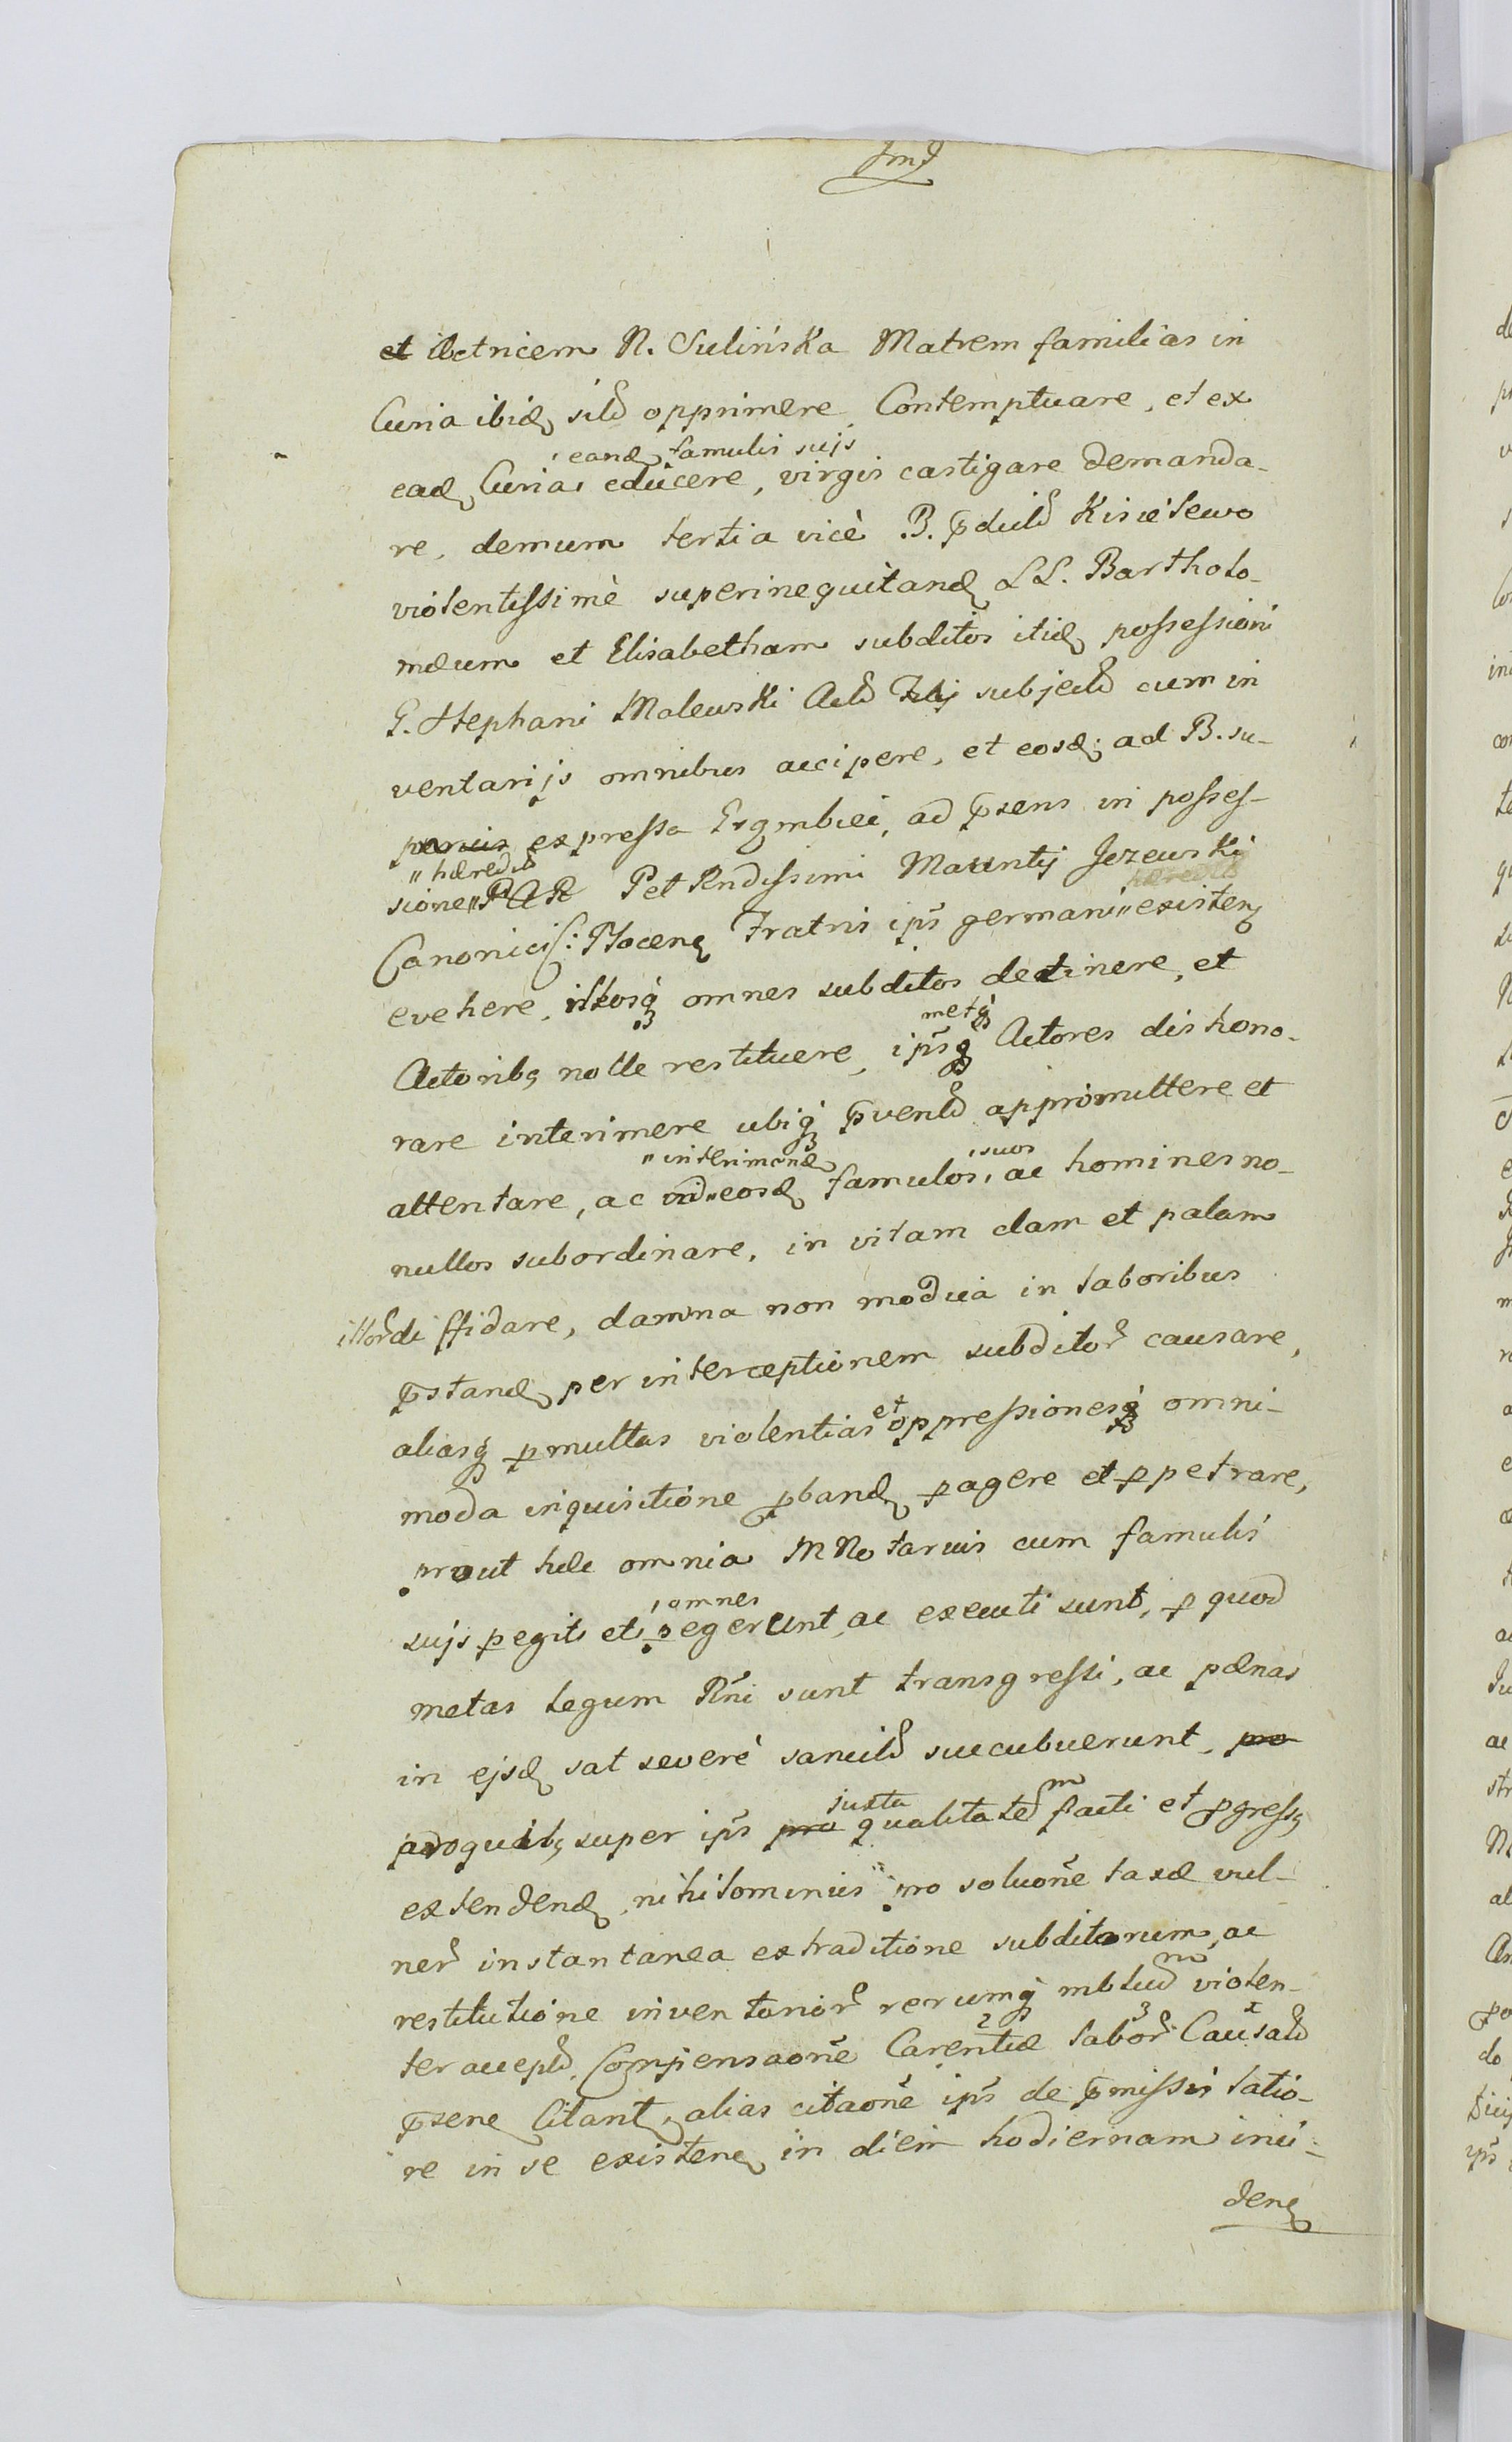 et ilctricem N. Sulińska Matrem familias in
Curia ibid. sitd opprimere Contemptuare, et ex
eand. famulis suis
ead. Curia educere, virgis castigare demanda-
re, demum tertia vicè B. pduld Kisielewo
violentissimè superinequitand. LL. Bartholo-
mæum et Elisabetham subditos itid. possessioni
G. Stephani Malewski subjectd cum in
ventarijs omnibus accipere, et eosd. ad B. su-
expressa ad psens in posses-
" hæredit
sione " Rndissimi Jezewski
Canonici Plocen. Fratris ips germani " existen.
evehere, illosq. omnes subditos detinere, et
metq.
Actorib. nolle restituere, ipsq. Actores dishono-
rare interimere ubiq. pventd appromittere et
" interimend. suos
attentare, ac ad " eosd. famulos, ac homines no-
nullos subordinare, in vitam clam et palam
illor diffidare, damna non modica in laboribus
pstand. per interceptionem subditor causare,
et
aliasq. pmultas violentias oppressionesq. omni-
moda inquisitione pband. pagere et ppetrare,
prout hæc omnia M Notarius cum famulis
omnes
suis pegit et pegerunt, ac executi sunt, p quod
metas legum Rni sunt transgressi, ac pænas
in ejsd. sat severè sancitd succubuerunt, pro
juxta m
proquib. super ips pro qualitated facti et pgress.
extendend. nihilominus pro soluone taxæ vul-
ner instantanea extraditione subditorum, ac
m
restitutione inventarior rerumq. mbtud violen-
2 3 1
ter acceptd, Compensaone Carentiæ labor Causatd
psens Citant. alias citaone ips de pmissis latio-
re in se existen. in diem hodiernam inci-
den.